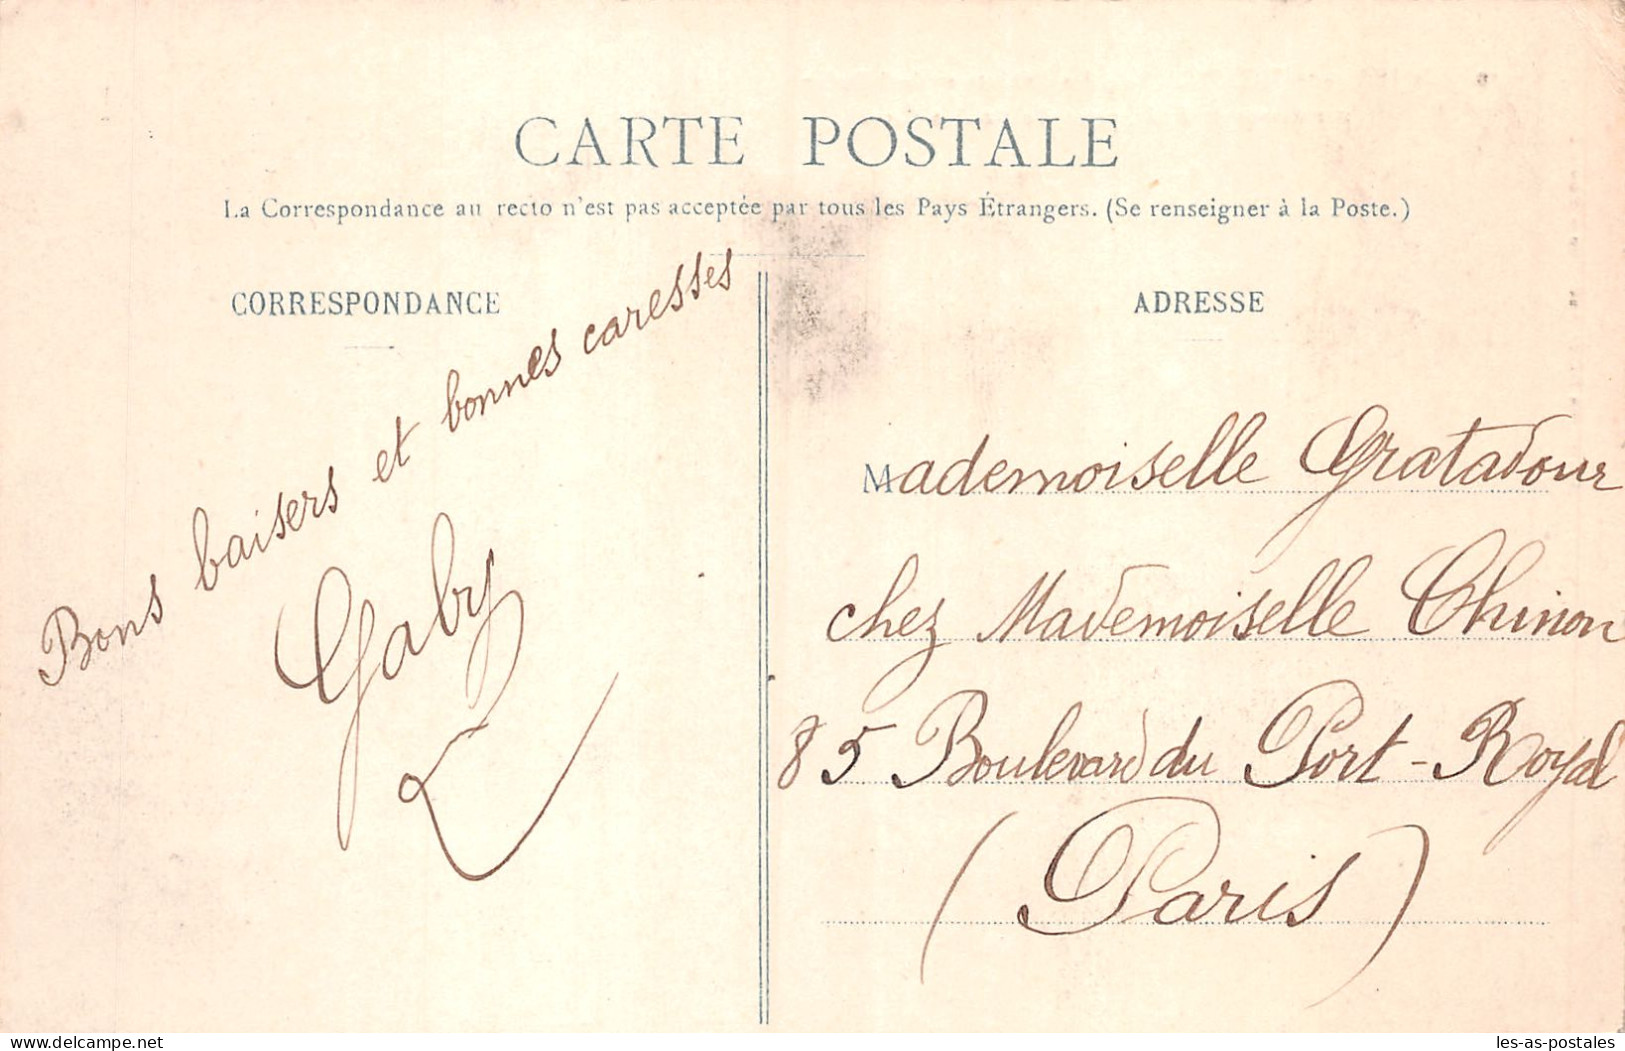 CARTE POSTALE
La Correspondance au recto n'est pas acceptée par tous les Pays Étrangers. (Se renseigner à la Poste.)
CORRESPONDANCE
Bons baisers et bonnes caresses
Gaby
ADRESSE
Mademoiselle Gratadour
chez Mademoiselle Chinon
85 Boulevard du Port-Royal
(Paris)
delcampe.net
les-as-postales